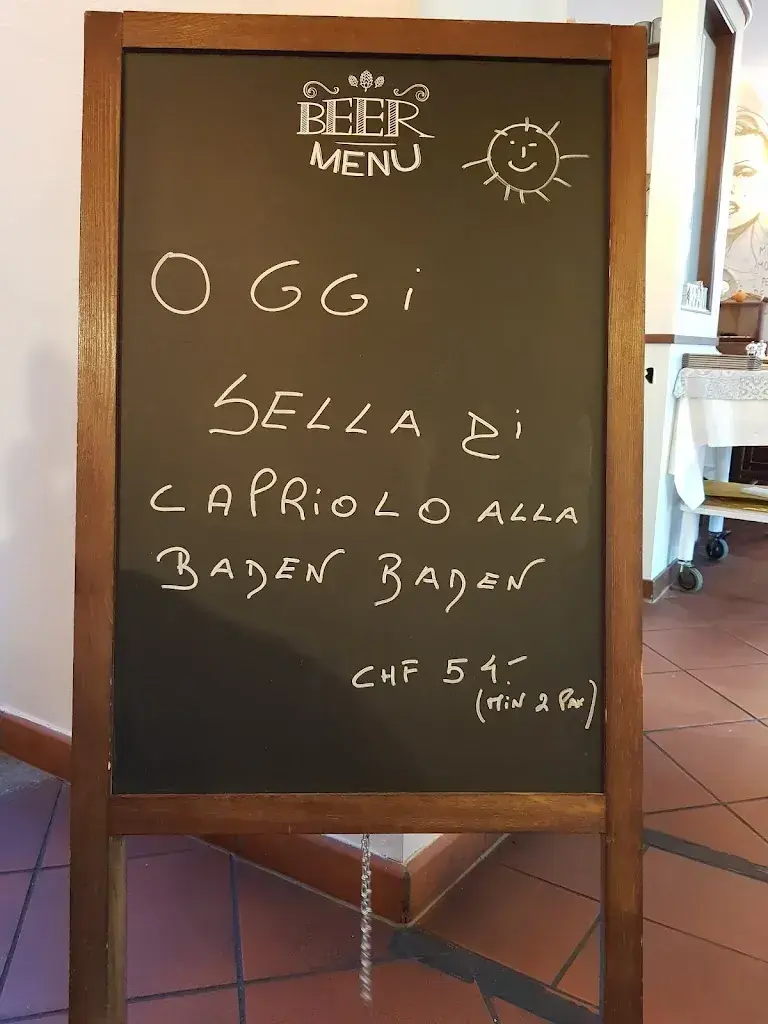 BEER
MENU
OGGi
SELLA Di
CAPRiOLO ALLA
BADEN BADEN
CHF 54.-
(MiN 2 Pax)